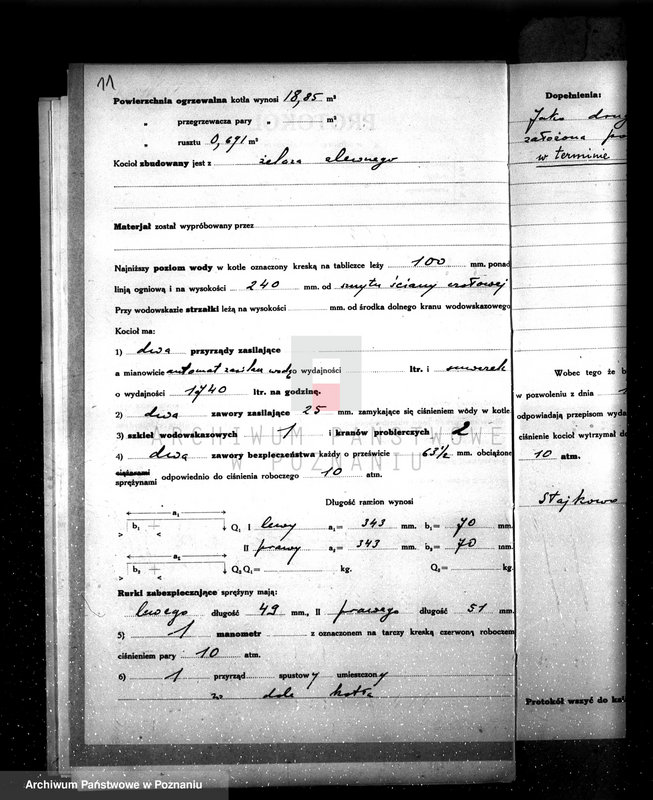 11
Powierzchnia ogrzewalna kotła wynosi 18,85 m²
„ przegrzewacza pary „ m²
„ rusztu 0,691 m²
Kocioł zbudowany jest z żelaza zlewnego
Materjał został wypróbowany przez
Najniższy poziom wody w kotle oznaczony kreską na tabliczce leży 100 mm. ponad
linją ogniową i na wysokości 240 mm. od ściany czołowej
Przy wodowskazie strzałki leżą na wysokości mm. od środka dolnego kranu wodowskazowego
Kocioł ma:
1) dwa przyrządy zasilające
a mianowicie automat o wydajności ltr. i smoczek
o wydajności 1740 ltr. na godzinę.
2) dwa zawory zasilające 25 mm. zamykające się ciśnieniem wódy w kotle
3) szkieł wodowskazowych 1 i kranów probierczych 2
4) dwa zawory bezpieczeństwa każdy o prześwicie 63½ mm. obciążone
ciężarami
sprężynami odpowiednio do ciśnienia roboczego 10 atm.
Długość ramion wynosi
a₁ b₁ Q₁ I lewy a₁= 343 mm. b₁= 70 mm.
II prawy a₂= 343 mm. b₂= 70 mm.
a₂ b₂ Q₂ Q₁= kg. Q₂= kg.
Rurki zabezpieczające sprężyny mają:
lewego długość 49 mm., II prawego długość 51 mm.
5) 1 manometr z oznaczonem na tarczy kreską czerwoną roboczem
ciśnieniem pary 10 atm.
6) 1 przyrząd spustowy umieszczony
w dole kotła
Dopełnienia:
Jako
założona
w terminie
Wobec tego że
w pozwoleniu z dnia
odpowiadają przepisom
ciśnienie kocioł wytrzymał
10 atm.
Stajkowo
Protokół wszyć do
ARCHIWUM PAŃSTWOWE
W POZNANIU
Archiwum Państwowe w Poznaniu